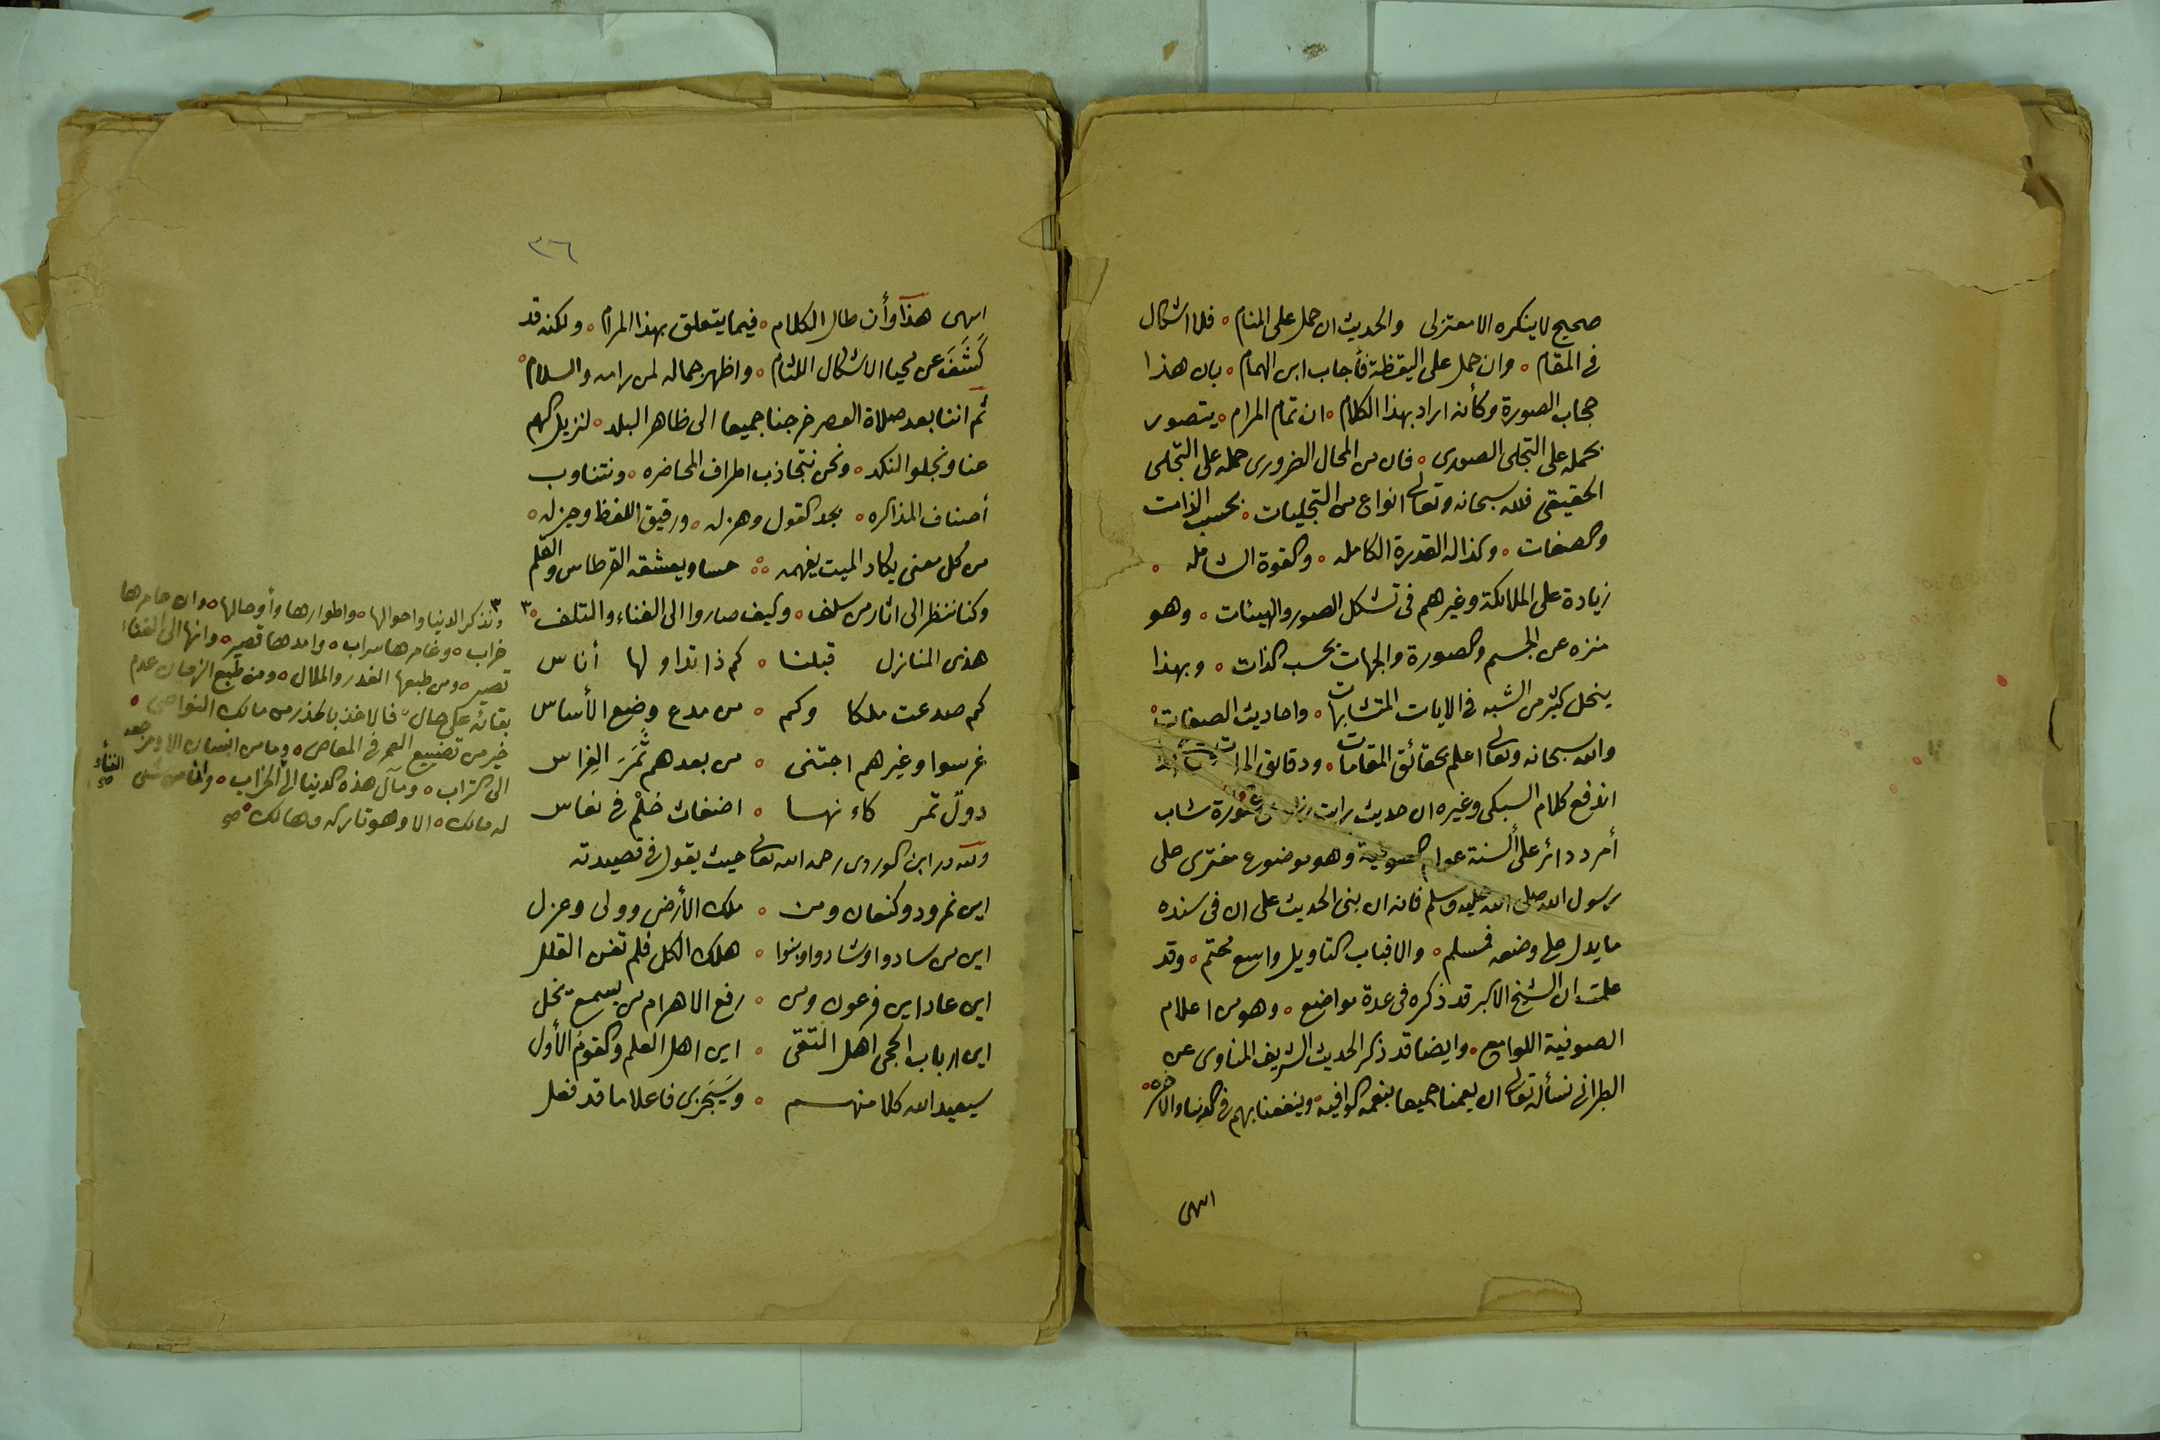 صحيح لا ينكره الا معتزلى والحديث ان حمل على المنام ۰ فلا اشكال
فى المقام ۰ وان حمل على اليقظة فأجاب ابن الهمام ۰ بان هذا
حجاب الصورة وكأنه اراد بهذا الكلام ۰ ان تمام المرام ۰ يتصور
بحمله على التجلى الصورى ۰ فان من المحال الضرورى حمله على التجلى
الحقيقى فلله سبحانه وتعالى انواع من التجليات ۰ بحسب الذات
والصفات ۰ وكذا له القدرة الكامله ۰ والقوة الشامله ۰
زيادة على الملائكة وغيرهم فى تشكل الصور والهيئات ۰ وهو
منزه عن الجسم والصورة والجهات بحسب الذات ۰ وبهذا
ينحل كثير من الشبه فى الايات المتشابهات ۰ واحاديث الصفات ۰
والله سبحانه وتعالى اعلم بحقائق المقامات ۰ ودقايق
اندفع كلام السبكى وغيره ان حديث رايت ربى فى صورة شاب
أمرد دائر على ألسنة عوام الصوفية وهو موضوع مفترى على
رسول الله صلى الله عليه وسلم فانه ان بنى الحديث على ان فى سنده
ما يدل على وضعه فمسلم ۰ والا فباب التاويل واسع محتم ۰ وقد
علمت ان الشيخ الاكبر قد ذكره فى عدة مواضع ۰ وهو من اعلام
الصوفية اللوامع ۰ وايضا قد ذكر الحديث الشريف المناوى عن
الطبرانى نسأله تعالى ان يعمنا جميعا بنعمه الوافيه ۰ وينفعنا بهم فى الدنيا والاخره ۰
انتهى
٣٦
انتهى هذا وأن طال الكلام ۰ فيما يتعلق بهذا المرام ۰ ولكنه قد
كَشَفَ عن محيا الاشكال اللثام ۰ واظهر جماله لمن رامه والسلام ۰
ثم اننا بعد صلاة العصر خرجنا جميعا الى ظاهر البلد ۰ لنزيل الهم
عنا ونجلو النكد ۰ ونحن نتجاذب اطراف المحاضره ۰ ونتناوب
أصناف المذاكره ۰ بجد القول وهزله ۰ ورقيق اللفظ وجزله ۰
من كل معنى يكاد الميت يفهمه ۰۰ حسا ويعشقه القرطاس والقلم
وكنا ننظر الى اثار من سلف ۰ وكيف صاروا الى الفناء والتلف ۰ ٣
هذى المنازل قبلنا ۰ كم ذا تداولها أناس
كم صدعت ملكا وكم ۰ من مدع وضع الأساس
غرسوا وغيرهم اجتنى ۰ من بعدهم ثَمَرَ الغِراس
دول تمر كاءنها ۰ اضغاث حُلْم فى نعاس
ولله در ابن الوردى رحمه الله تعالى حيث يقول فى قصيدته
اين نمرود وكنعان ومن ۰ ملك الأرض وولى وعزل
اين من سادوا وشادوا وبنوا ۰ هلك الكل فلم تغن القلل
اين عاد اين فرعون ومن ۰ رفع الاهرام من يسمع يخل
اين ارباب الحجى اهل التقى ۰ اين اهل العلم والقوم الأول
سيعيد الله كلا منهم ۰ وسَيَجْزى فاعلا ما قد فعل
٣ ونذكر الدنيا واحوالها ۰ واطوارها وأوحالها ۰ وان عامرها
خراب ۰ وغامرها سراب ۰ وامدها قصير ۰ وانها الى الفناء
تصير ۰ ومن طبعها الغدر والملال ۰ ومن طبع الزمان عدم
بقائه على حال ۰ فالاخذ بالحذر من مالك النواصى ۰
خير من تضييع العمر فى المعاصى ۰ وما من انسان الا ومرجعه
الى التراب ۰ ومآل هذه الدنيا الى الخراب ۰ وما من شى
له مالك ۰ الا وهو تاركه وهالك ۰ صح